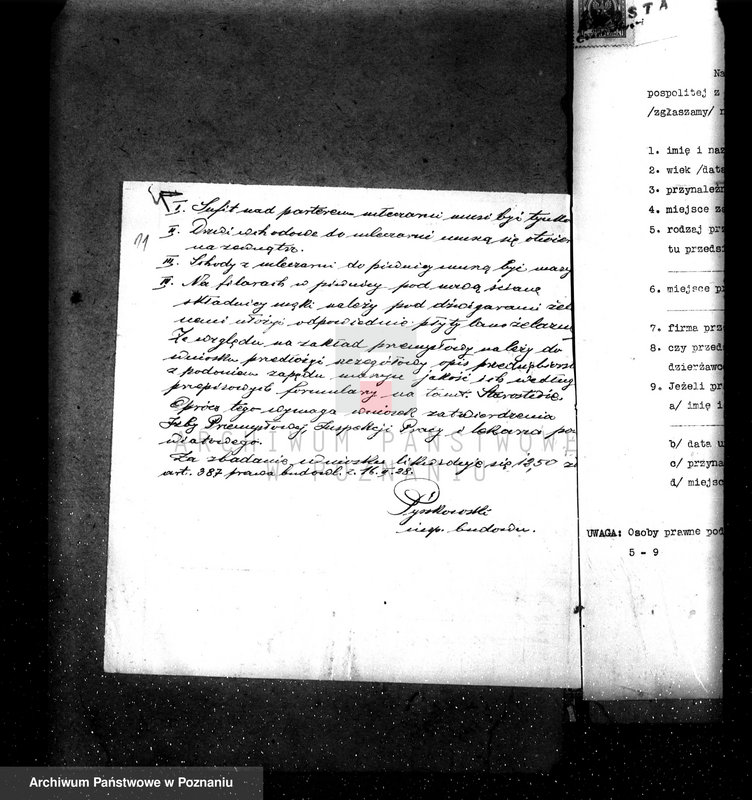 I. Sufit nad parterem mleczarni musi być
II. Drzwi wchodowe do mleczarni muszą się
na zewnątrz.
III. Schody z mleczarni do piwnicy muszą być
IV. Na filarach w piwnicy pod ścianą
składnicy mąki należy pod dźwigarami żel
nemi ułożyć odpowiednie płyty lano żelazne
Ze względu na zakład przemysłowy należy do
wniosku przedłożyć szczegółowy opis przedsiębiorst
z podaniem zapędu maszyn jakość sił według
przepisowych formularzy na tamt. Starostwie.
Oprócz tego wymaga wniosek zatwierdzenia
Izby Przemysłowej, Inspekcji Pracy i lekarza po
wiatowego.
Za zbadanie wniosku likwiduje się 12,50 zł
art. 387 prawa budowl. z 16.2.28.
Pyszkowski
insp. budowl.
11
STA
Na
pospolitej z
/zgłaszamy/ n
1. imię i naz
2. wiek /data
3. przynależn
4. miejsce za
5. rodzaj prz
tu przedsi
6. miejsce p
7. firma prze
8. czy przeds
dzierżawc
9. Jeżeli pr
a/ imię i
b/ data u
c/ przyna
d/ miejsc
UWAGA: Osoby prawne pod
5 - 9
ARCHIWUM PAŃSTWOWE
W POZNANIU
Archiwum Państwowe w Poznaniu